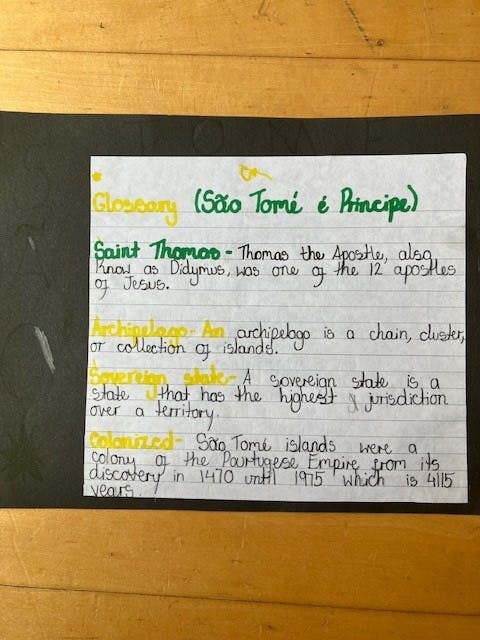 Glossary (São Tomé é Principe)
Saint Thomas - Thomas the Apostle, also
Know as Didymus, was one of the 12 apostles
of Jesus.
Archipelago - An archipelago is a chain, cluster,
or collection of islands.
Sovereign state - A sovereign state is a
state that has the highest jurisdiction
over a territory.
Colonized - São Tomé islands were a
colony of the Pourtugese Empire from its
discovery in 1470 until 1975 which is
years.